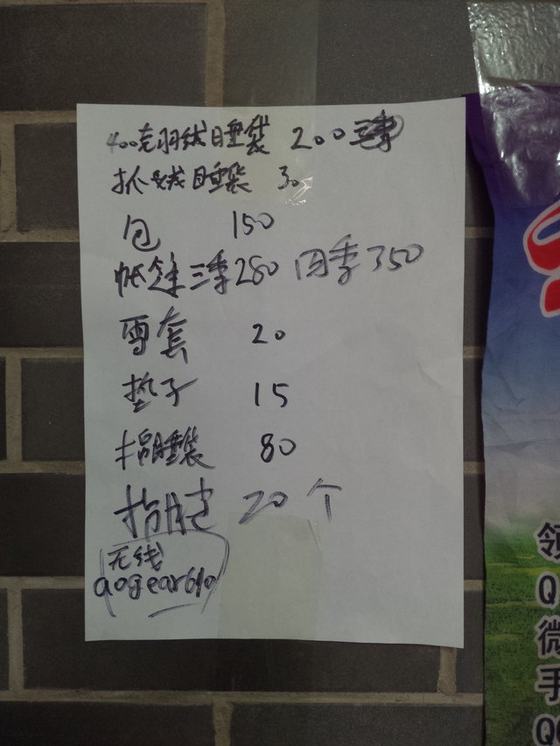 400克羽绒睡袋 200
抓绒睡袋 30
包 150
帐篷 三季280 四季350
雪套 20
垫子 15
棉睡袋 80
20个
无线
aogear610
领
Q
微
手
QQ